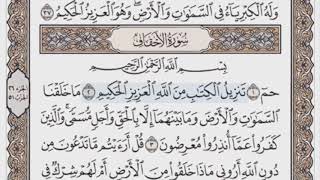 وَلَهُ الْكِبْرِيَاءُ فِي السَّمَٰوَٰتِ وَالْأَرْضِ وَهُوَ الْعَزِيزُ الْحَكِيمُ ٣٧
سُورَةُ الْأَحْقَافِ
بِسْمِ اللَّهِ الرَّحْمَٰنِ الرَّحِيمِ
حمٓ ١ تَنزِيلُ الْكِتَٰبِ مِنَ اللَّهِ الْعَزِيزِ الْحَكِيمِ ٢ مَا خَلَقْنَا
السَّمَٰوَٰتِ وَالْأَرْضَ وَمَا بَيْنَهُمَا إِلَّا بِالْحَقِّ وَأَجَلٍ مُّسَمًّى وَالَّذِينَ
كَفَرُوا عَمَّا أُنذِرُوا مُعْرِضُونَ ٣ قُلْ أَرَءَيْتُم مَّا تَدْعُونَ مِن
دُونِ اللَّهِ أَرُونِي مَاذَا خَلَقُوا مِنَ الْأَرْضِ أَمْ لَهُمْ شِرْكٌ فِي